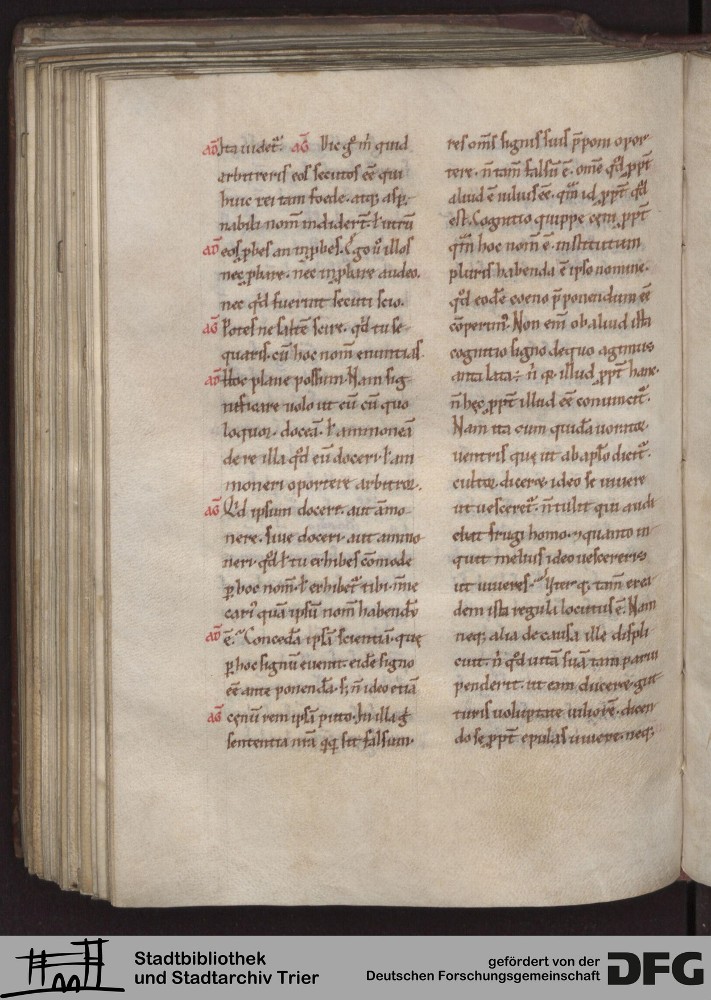 AD Ita uidet᷑. AG Hic g̊ m̄ quid
arbitreris eos secutos ēē qui
huic rei tam foede. atq; asp̱-
nabili nom̄ indidert̄. ł utrū
AD eos p̱bes an inp̱bes. Ego ū illos
nec p̱bare. nec inp̱bare audeo.
nec qđ fuerint secuti scio.
AG Potes ne saltē scire. qđ tu se-
quaris. cū hoc nom̄ enuntias.
AD Hoc plane possum. Nam sig-
nificare uolo ut eū cū quo
loquor. doceā. ł ammoneā
de re illa qđ eū doceri. ł am
moneri oportere arbitror.
AG Qđ ipsum docere. aut āmo-
nere. siue doceri. aut ammo
neri. qđ ł tu exhibes cōmode
p̱ hoc nom̄. ł exhibet᷑ tibi. nn̄e
cari᷒ quā ipsū nom̄ habendū
AD ē. Conceda ipsā scientiā. que
p̱ hoc signū euenit. eidē signo
ēē ante ponendā. s; n̄ ideo etiā
AG cęnū rem ipsā puto. In illa g̊
sententia nr̄a q̱q̱ sit falsum.
res om̄s signis suis p̄poni opor
tere. n̄ tam̄ falsū ē. om̄e qđ pp̄t
aliud ē uilius ēē. qm̄ id pp̄t qđ
est. Cognitio quippe cęni. pp̄t
qm̄ hoc nom̄ ē institutum
pluris habenda ē ipso nomine.
qđ eodē coeno p̄ponendum ēē
cōperim᷒. Non eni ob aliud ista
cognitio signo de quo agimus
antelata ÷ n̄ q̱ illud pp̄t hanc.
n̄ hęc pp̄t illud ēē conuincit᷑.
Nam ita cum quidā uorator
uentris que ut ab apło dicit᷑.
cultor. diceret ideo se uiuere
ut uesceret᷑. n̄ tulit qui audi
ebat frugi homo. & quanto in-
quit melius ideo uescereris
ut uiueres. Vter q; tam̄ ex ea
dem ista regula locutus ē. Nam
neq; alia de causa ille displi
cuit. n̄ qđ uitā suā tam parui
penderit. ut eam duceret gut
turis uoluptate uiliorē. dicen
do se pp̄t epulas uiuere. neq;
Stadtbibliothek
und Stadtarchiv Trier
gefördert von der
Deutschen Forschungsgemeinschaft
DFG